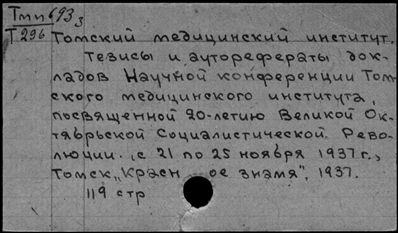 Тми 693з
Т296
Томский медицинский институт.
Тезисы и авторефераты док-
ладов Научной конференции Том-
ского медицинского института,
посвященной 20-летию Великой Ок-
тябрьской Социалистической Рево-
люции. (с 21 по 25 ноября 1937 г.,
Томск, „Красн ое знамя", 1937.
119 стр